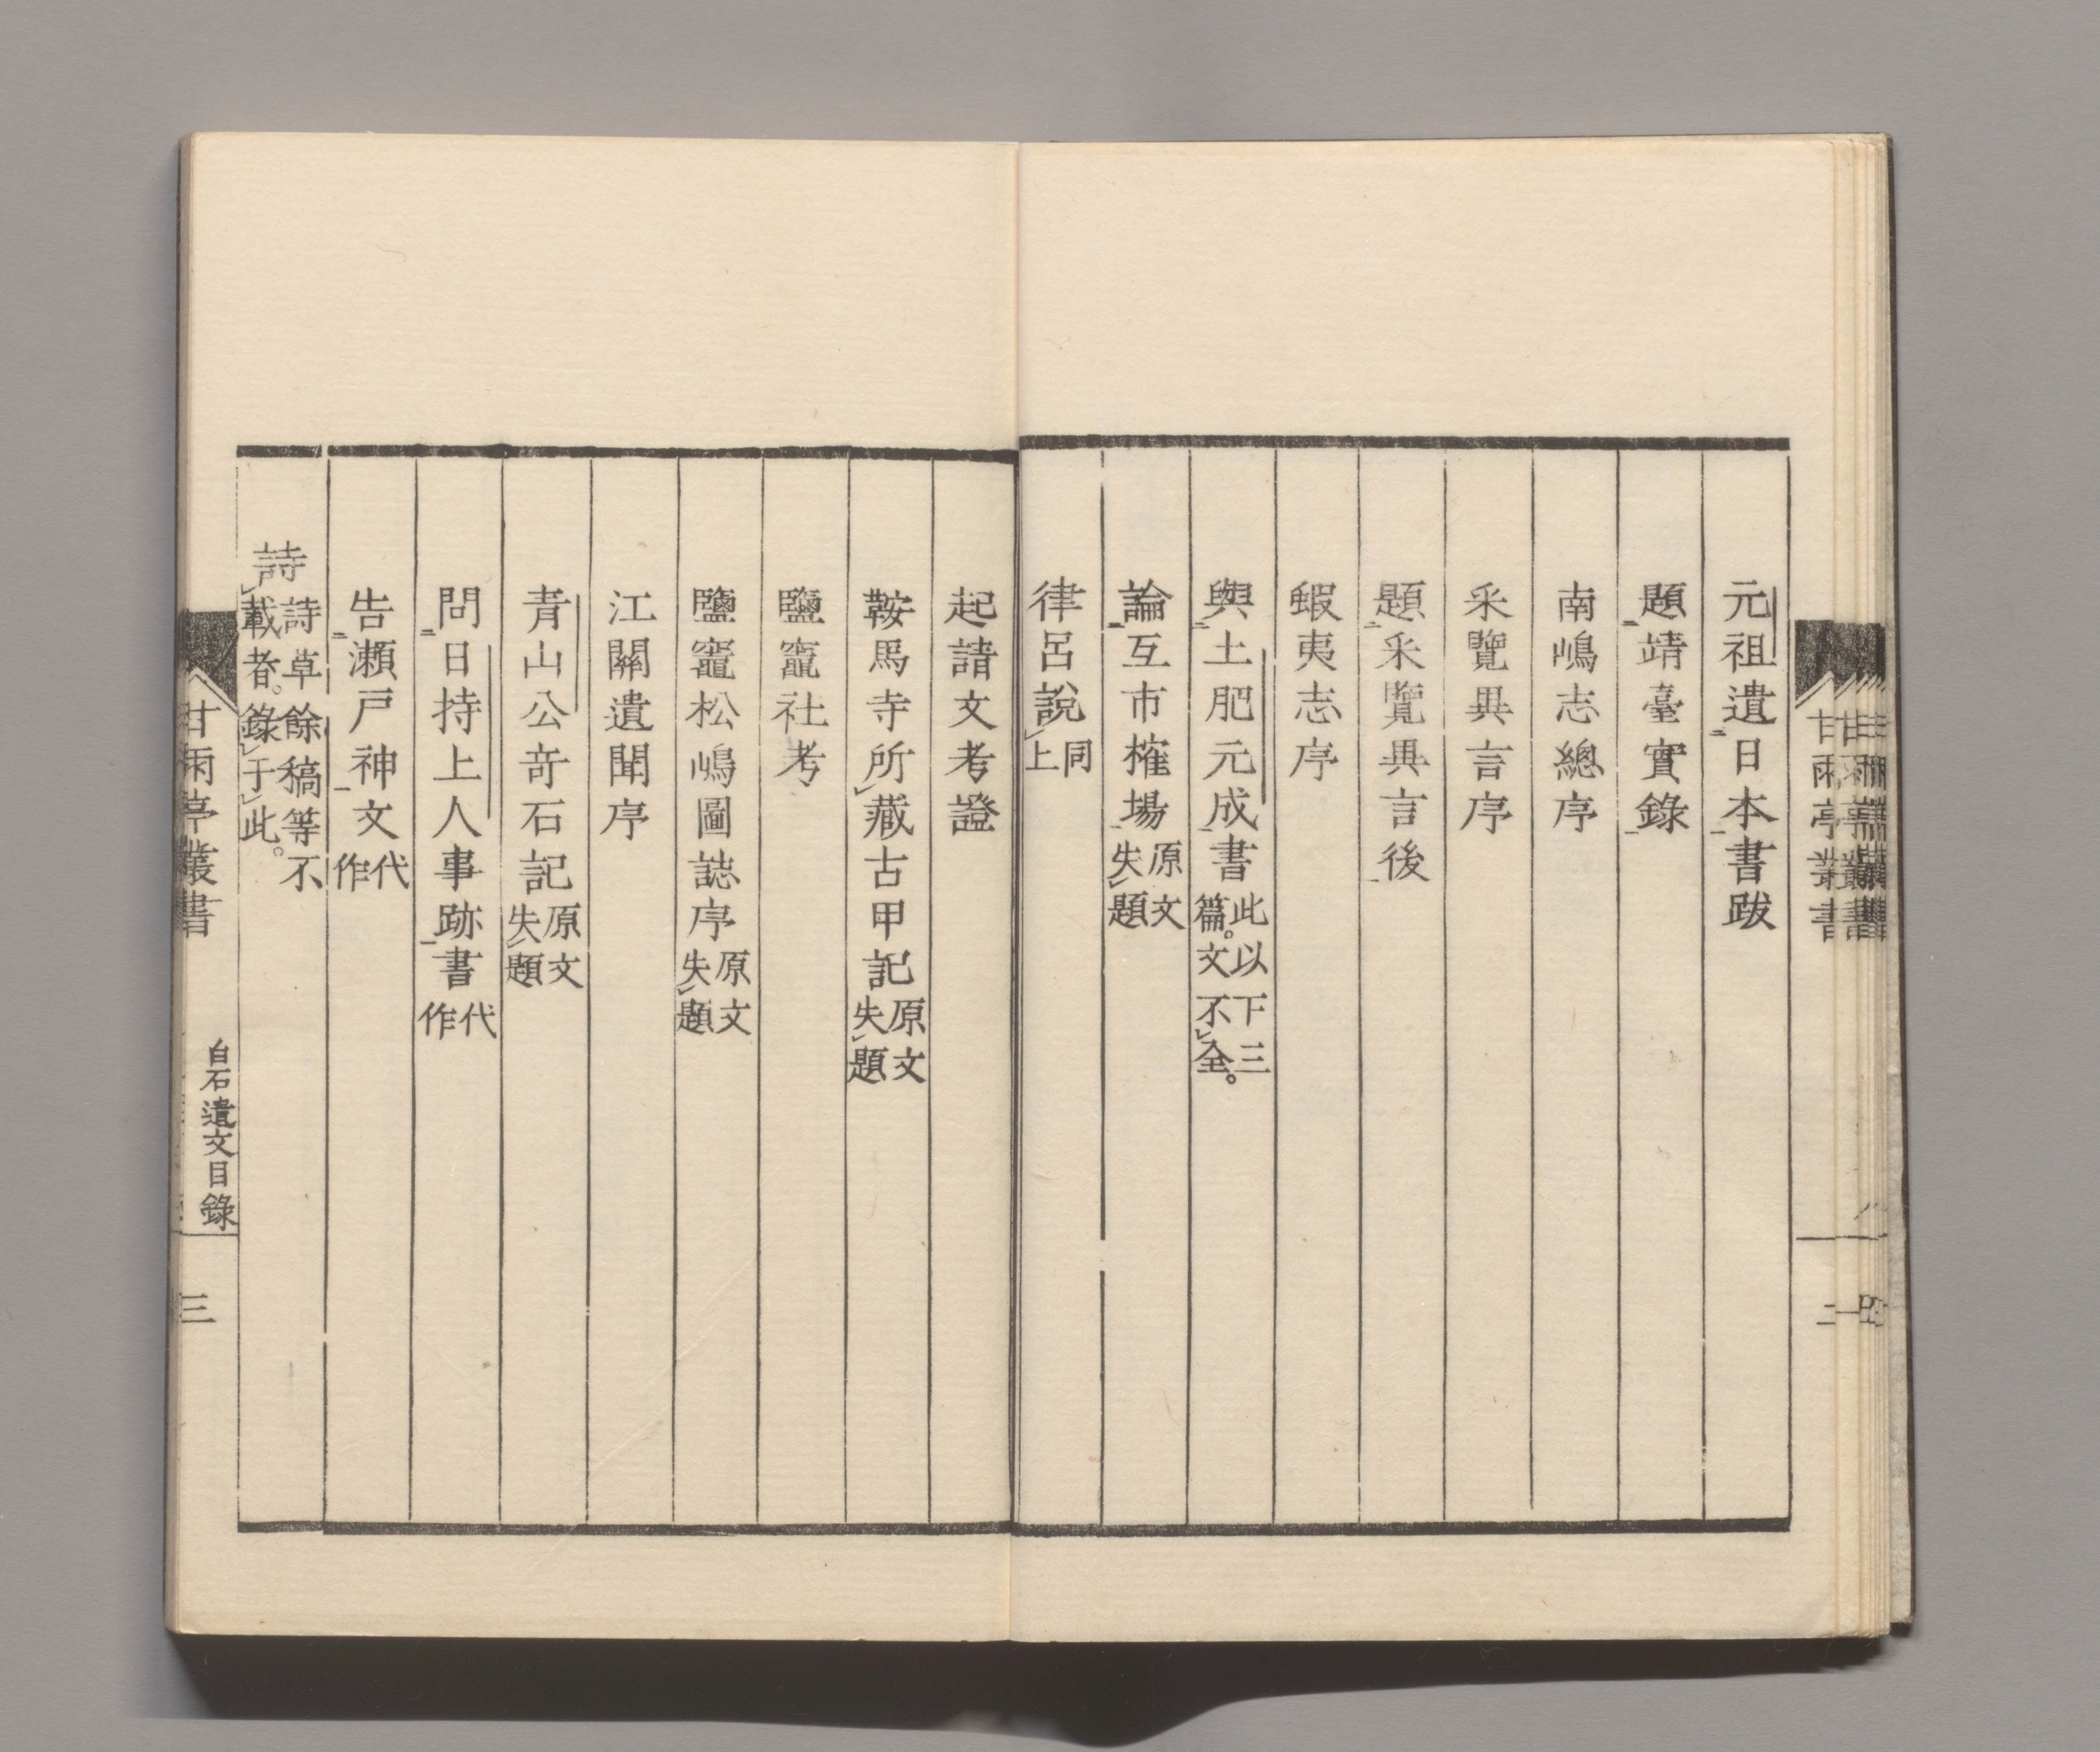 元祖遺日本書跋
題靖臺實錄
南嶋志總序
采覽異言序
題采覽異言後
蝦夷志序
與土肥元成書此以下三篇。文不全。
論互市榷場原文失題
律呂說同上
起請文考證
鞍馬寺所藏古甲記原文失題
鹽竈社考
鹽竈松嶋圖誌序原文失題
江關遺聞序
青山公奇石記原文失題
問日持上人事跡書代作
告瀨戸神文代作
詩詩草餘稿等不載者。錄于此。
甘雨亭叢書
白石遺文目錄
三